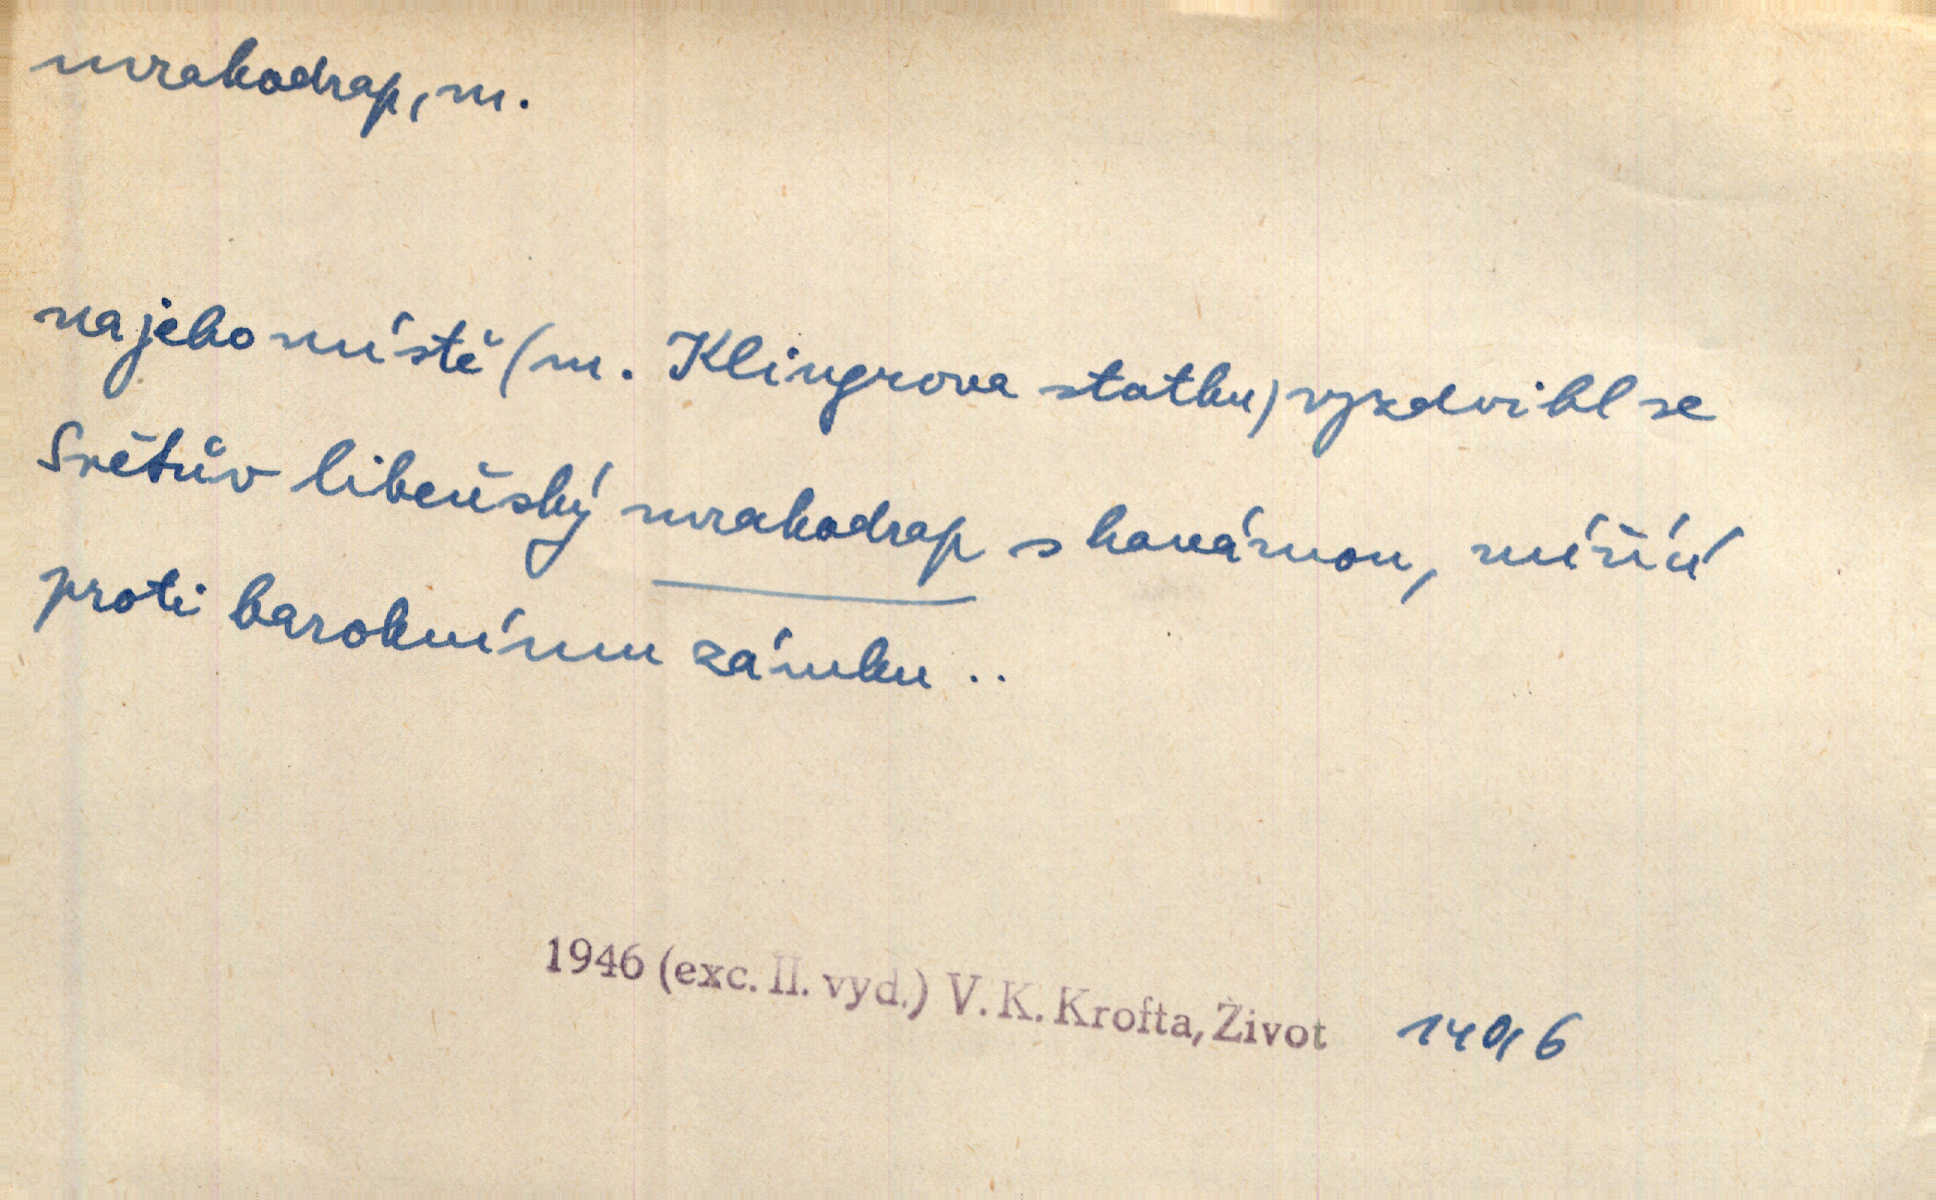 mrakodrap, m.
na jeho místě (m. Klingrova statku) vyzdvihl se
Světův libeňský mrakodrap s kavárnou, mířící
proti baroknímu zámku ..
1946 (exc. II. vyd.) V. K. Krofta, Život